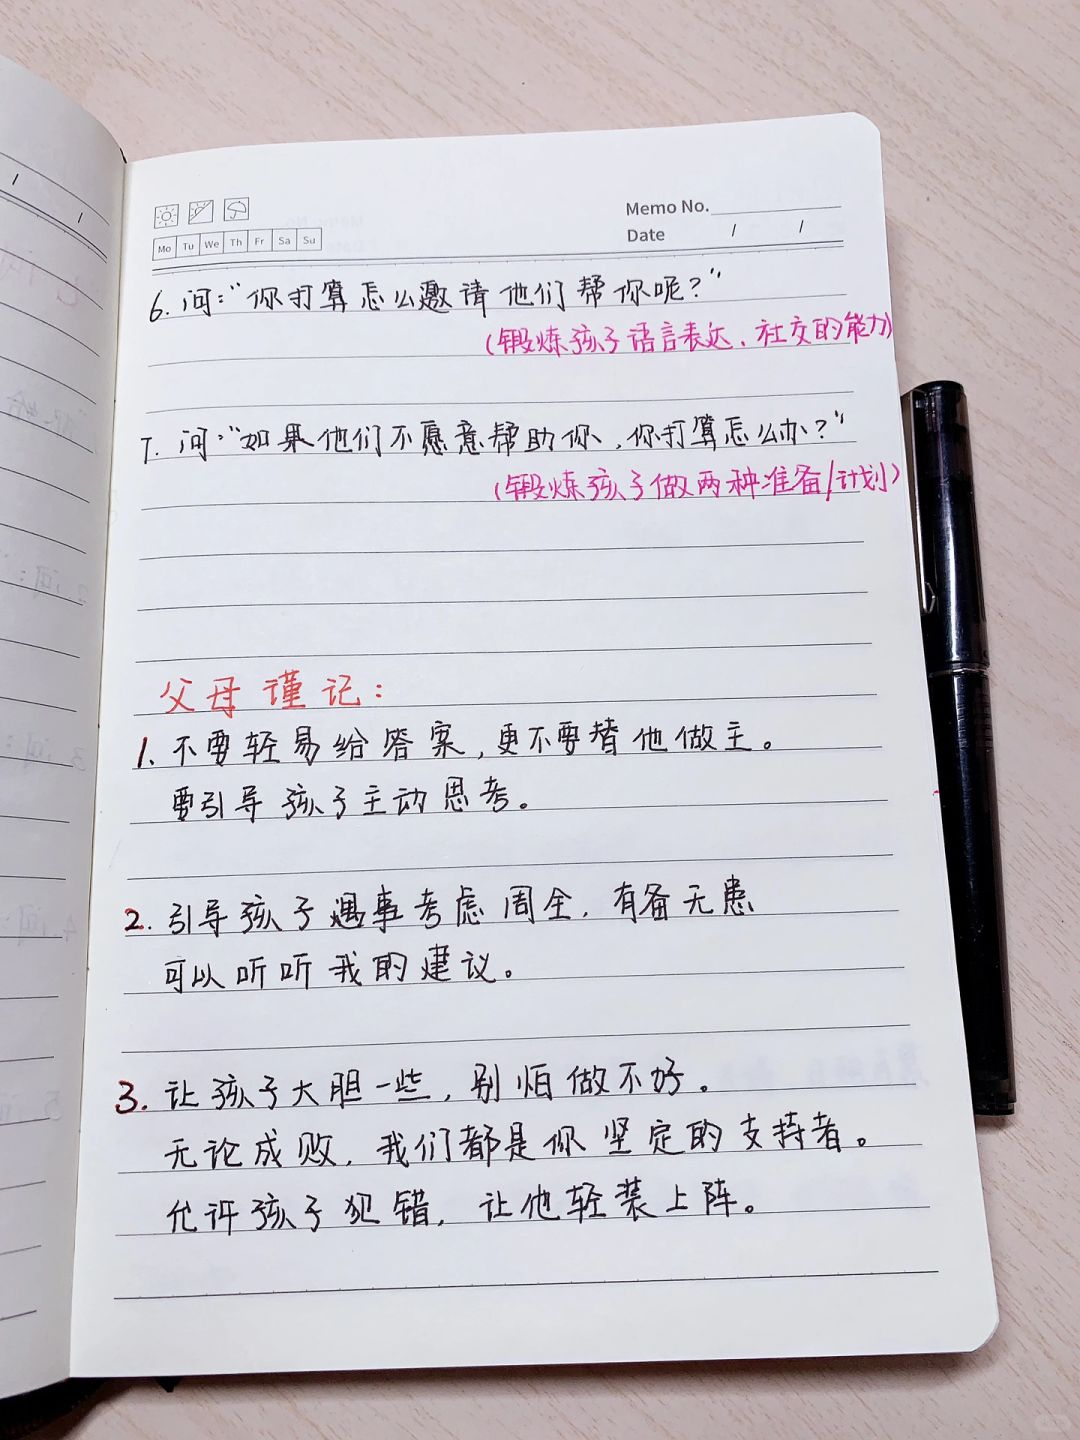 Memo No.
Date / /
Mo Tu We Th Fr Sa Su
6. 问:“你打算怎么邀请他们帮你呢?”
(锻炼孩子语言表达、社交的能力)
7. 问:“如果他们不愿意帮助你,你打算怎么办?”
(锻炼孩子做两种准备/计划)
父母谨记:
1. 不要轻易给答案,更不要替他做主。
要引导孩子主动思考。
2. 引导孩子遇事考虑周全,有备无患
可以听听我的建议。
3. 让孩子大胆一些,别怕做不好。
无论成败,我们都是你坚定的支持者。
允许孩子犯错,让他轻装上阵。